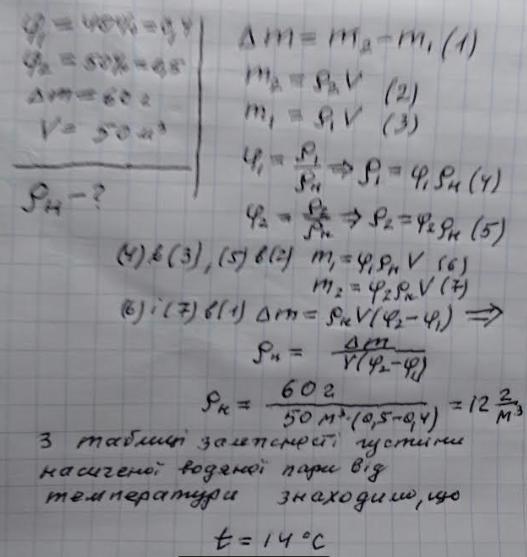 φ₁ = 40% = 0,4
φ₂ = 50% = 0,5
Δm = 60 г
V = 50 м³
ρн - ?
Δm = m₂ - m₁ (1)
m₂ = ρ₂V (2)
m₁ = ρ₁V (3)
φ₁ = ρ₁/ρн ⇒ ρ₁ = φ₁ρн (4)
φ₂ = ρ₂/ρн ⇒ ρ₂ = φ₂ρн (5)
(4) в (3), (5) в (2) m₁ = φ₁ρнV (6)
m₂ = φ₂ρнV (7)
(6) і (7) в (1) Δm = ρнV(φ₂ - φ₁) ⇒
ρн = Δm / V(φ₂ - φ₁)
ρн = 60 г / 50 м³·(0,5 - 0,4) = 12 г/м³
З таблиці залежності густини
насиченої водяної пари від
температури знаходимо, що
t = 14 °C